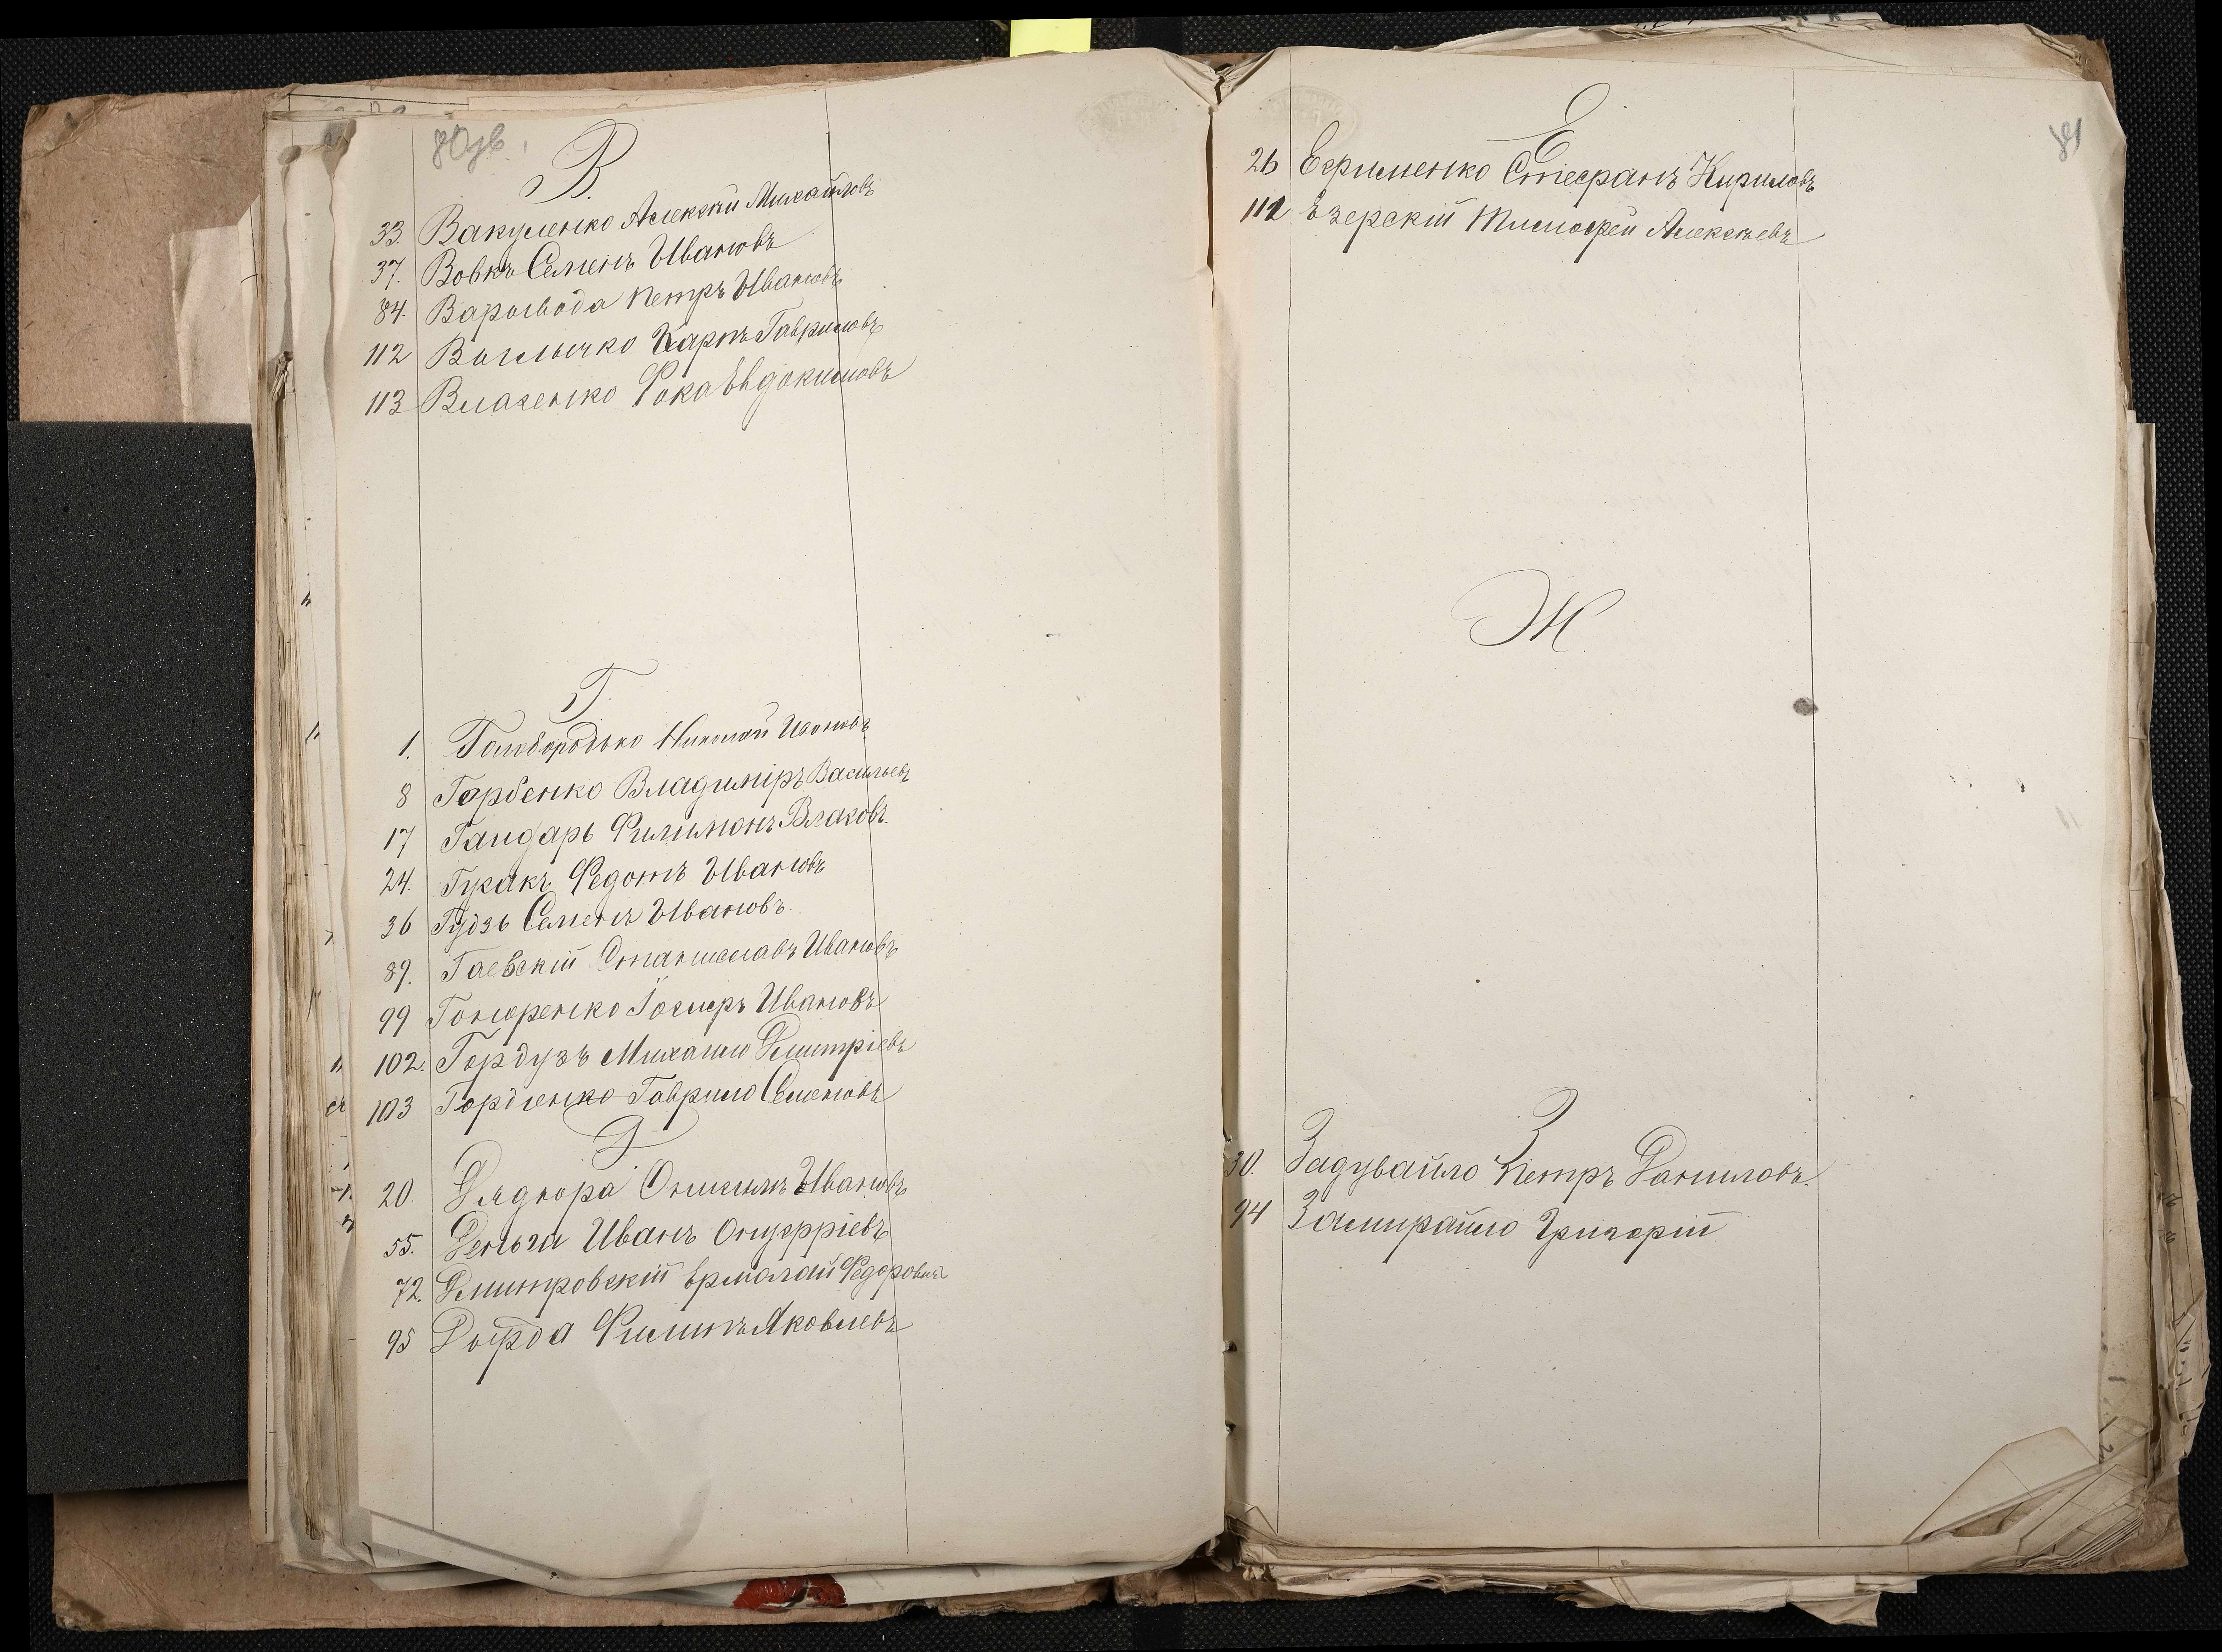 80зв.
В.
33. Вакуленко Алексѣй Михайловъ
37. Вовкъ Семенъ Ивановъ
84. Варывода Петръ Ивановъ
112 Карпъ Гавриловъ
113 Власенко Фока Евдокимовъ
Г.
1. Голобородько Николай Ивановъ
8 Горбенко Владиміръ Васильевъ
17 Гандарь Филимонъ Власовъ
24. Гусакъ Федотъ Ивановъ
36 Гудзь Семенъ Ивановъ
89. Гаевскій Станиславъ Ивановъ
99 Гончаренко Іосифъ Ивановъ
102. Гордузъ Михаило Дмитріевъ
103 Гордіенко Гаврило Семеновъ
Д
20. Дядюра Онисимъ Ивановъ
55. Деньга Иванъ Онуфріевъ
72. Дмитровскій Ермолай Федоровичъ
95 Дырда Филипъ Яковлевъ
81
Е
26 Ефименко Стефанъ Кириловъ
112 Езерскій Тимофей Алексѣевъ
Ж
З
30. Задувайло Петръ Даниловъ.
94 Замирайло Григорій